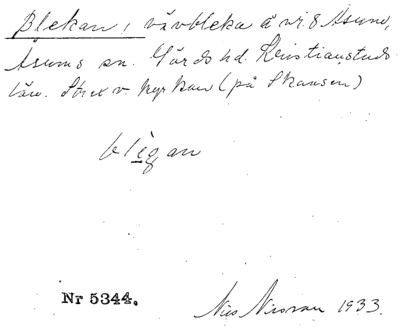 Blekan, vävbleka å nr. 8 Åsum,
Åsums sn. Gärds hd. Kristianstads
län. Strax v. kyrkan (på Skansen)
bligan
Nr 5344.
Nils Nilsson 1933.